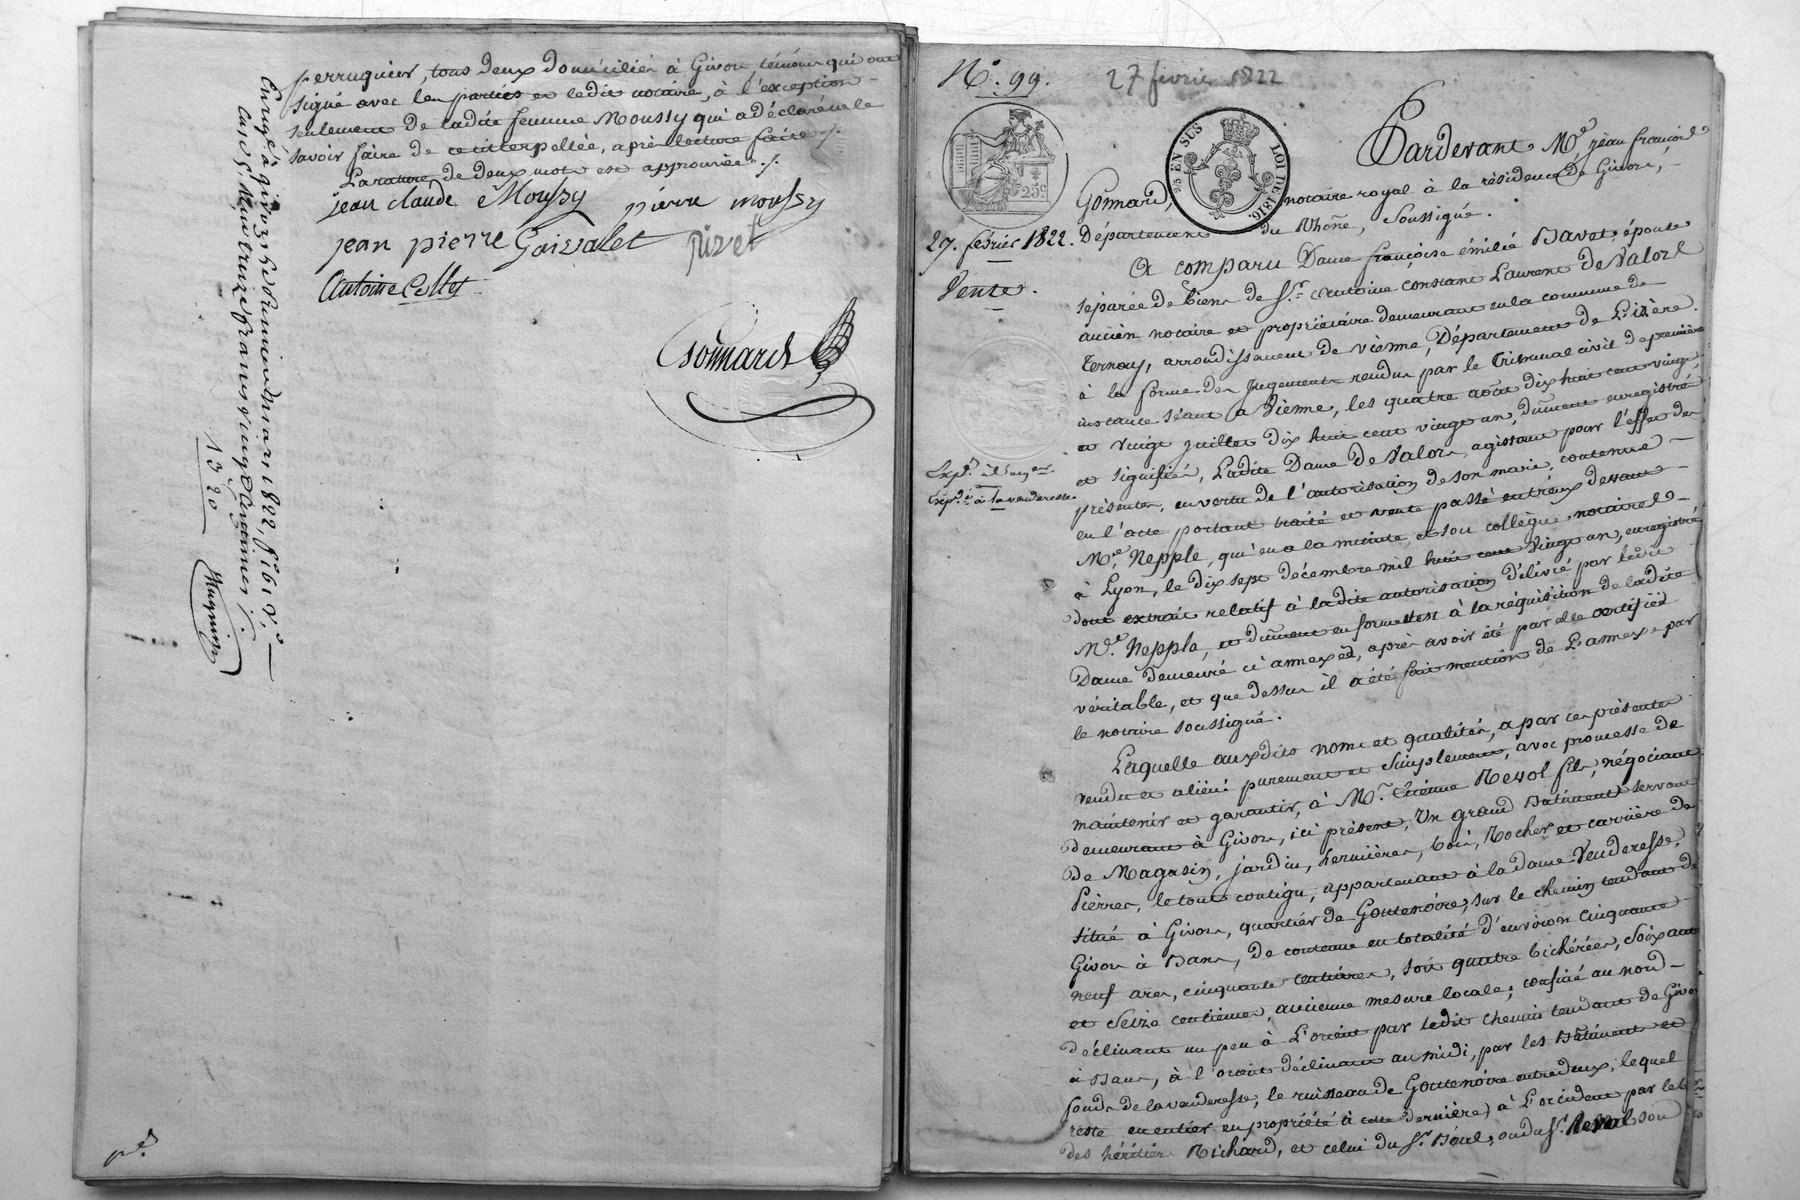 perruquier, tous deux domiciliés à Givors témoins qui ont
signé avec les parties et ledit notaire, à l'exception
seulement de ladite femme Moussy qui a déclaré ne le
savoir faire de ce interpellée, après lecture faite ./.
La rature de deux mots est approuvée ./.
jean claude Moussy pierre moussy
jean pierre Goisvalet pivet
Antoine
Gonnard
Enrgé à givors le mars 1822, f° 161 V°
francs vingt centimes ./.
1320
Magnin
N°. 99. 27 fevrier 1822
25 EN SUS LOI DE 1816.
25c
27. fevrier 1822.
Vente.
Expé.
Expé. à la venderesse.
Pardevant Me jean françois
Gonnard, notaire royal à la résidence de Givors,
Département du Rhône, Soussigné.
A comparu Dame françoise émilie Bavet, épouse
séparée de biens de Sr. Antoine Constant Laurent De Valors
ancien notaire et propriétaire demeurant en la commune de
Ternay, arrondissement de Vienne, Département de L'isère.
à la forme des Jugements rendus par le Tribunal civil de première
instance séant à Vienne, les quatre août dix huit cent vingt
et vingt juillet dix huit cent vingt un, dûment enregistrés
et signifiés, Ladite Dame De Valors, agissant pour l'effet des
présentes, en vertu de l'autorisation de son mari, contenue
en l'acte portant traité et vente passé entr'eux devant
Me. Nepple, qui en a la minute, et son collègue notaires
à Lyon, le dix sept décembre mil huit cent vingt un, enregistré
dont extrait relatif à ladite autorisation délivré par ledit
Me. Nepple, et dûment en forme est à la réquisition de ladite
Dame demeuré ci annexé, après avoir été par elle certifié
véritable, et que dessus il a été fait mention de L'annexe par
le notaire soussigné.
Laquelle auxdits noms et qualités, a par ces présentes
vendu et aliéné purement et simplement, avec promesse de
maintenir et garantir, à Mr. Etienne Revol fils, négociant
demeurant à Givors, ici présent, Un grand Bâtiment servant
de Magasin, jardin, hermières, bois, Rocher et carrière de
Pierres, le tout contigu, appartenant à la dame Venderesse,
situé à Givors, quartier de Goutenoire, sur le chemin tendant de
Givors à Bans, de contenue en totalité d'environ Cinquante
neuf ares, cinquante centiares, soit quatre bicherées, Soixante
et Seize centièmes, ancienne mesure locale; confiné au nord
déclinant un peu à L'orient par ledit chemin tendant de Givors
à Bans, à l'orient déclinant au midi, par les Bâtiment et
fonds de la venderesse, le ruisseau de Goutenoire entredeux, lequel
reste en entier en propriété à cette dernière) à L'occident par le
des héritiers Richard, et celui du Sr. Béal, ou du Sr. Revol son